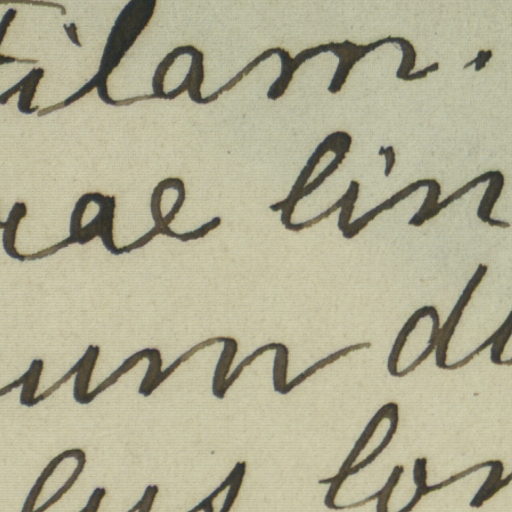 tilam.
rae lin
um di
lus lon